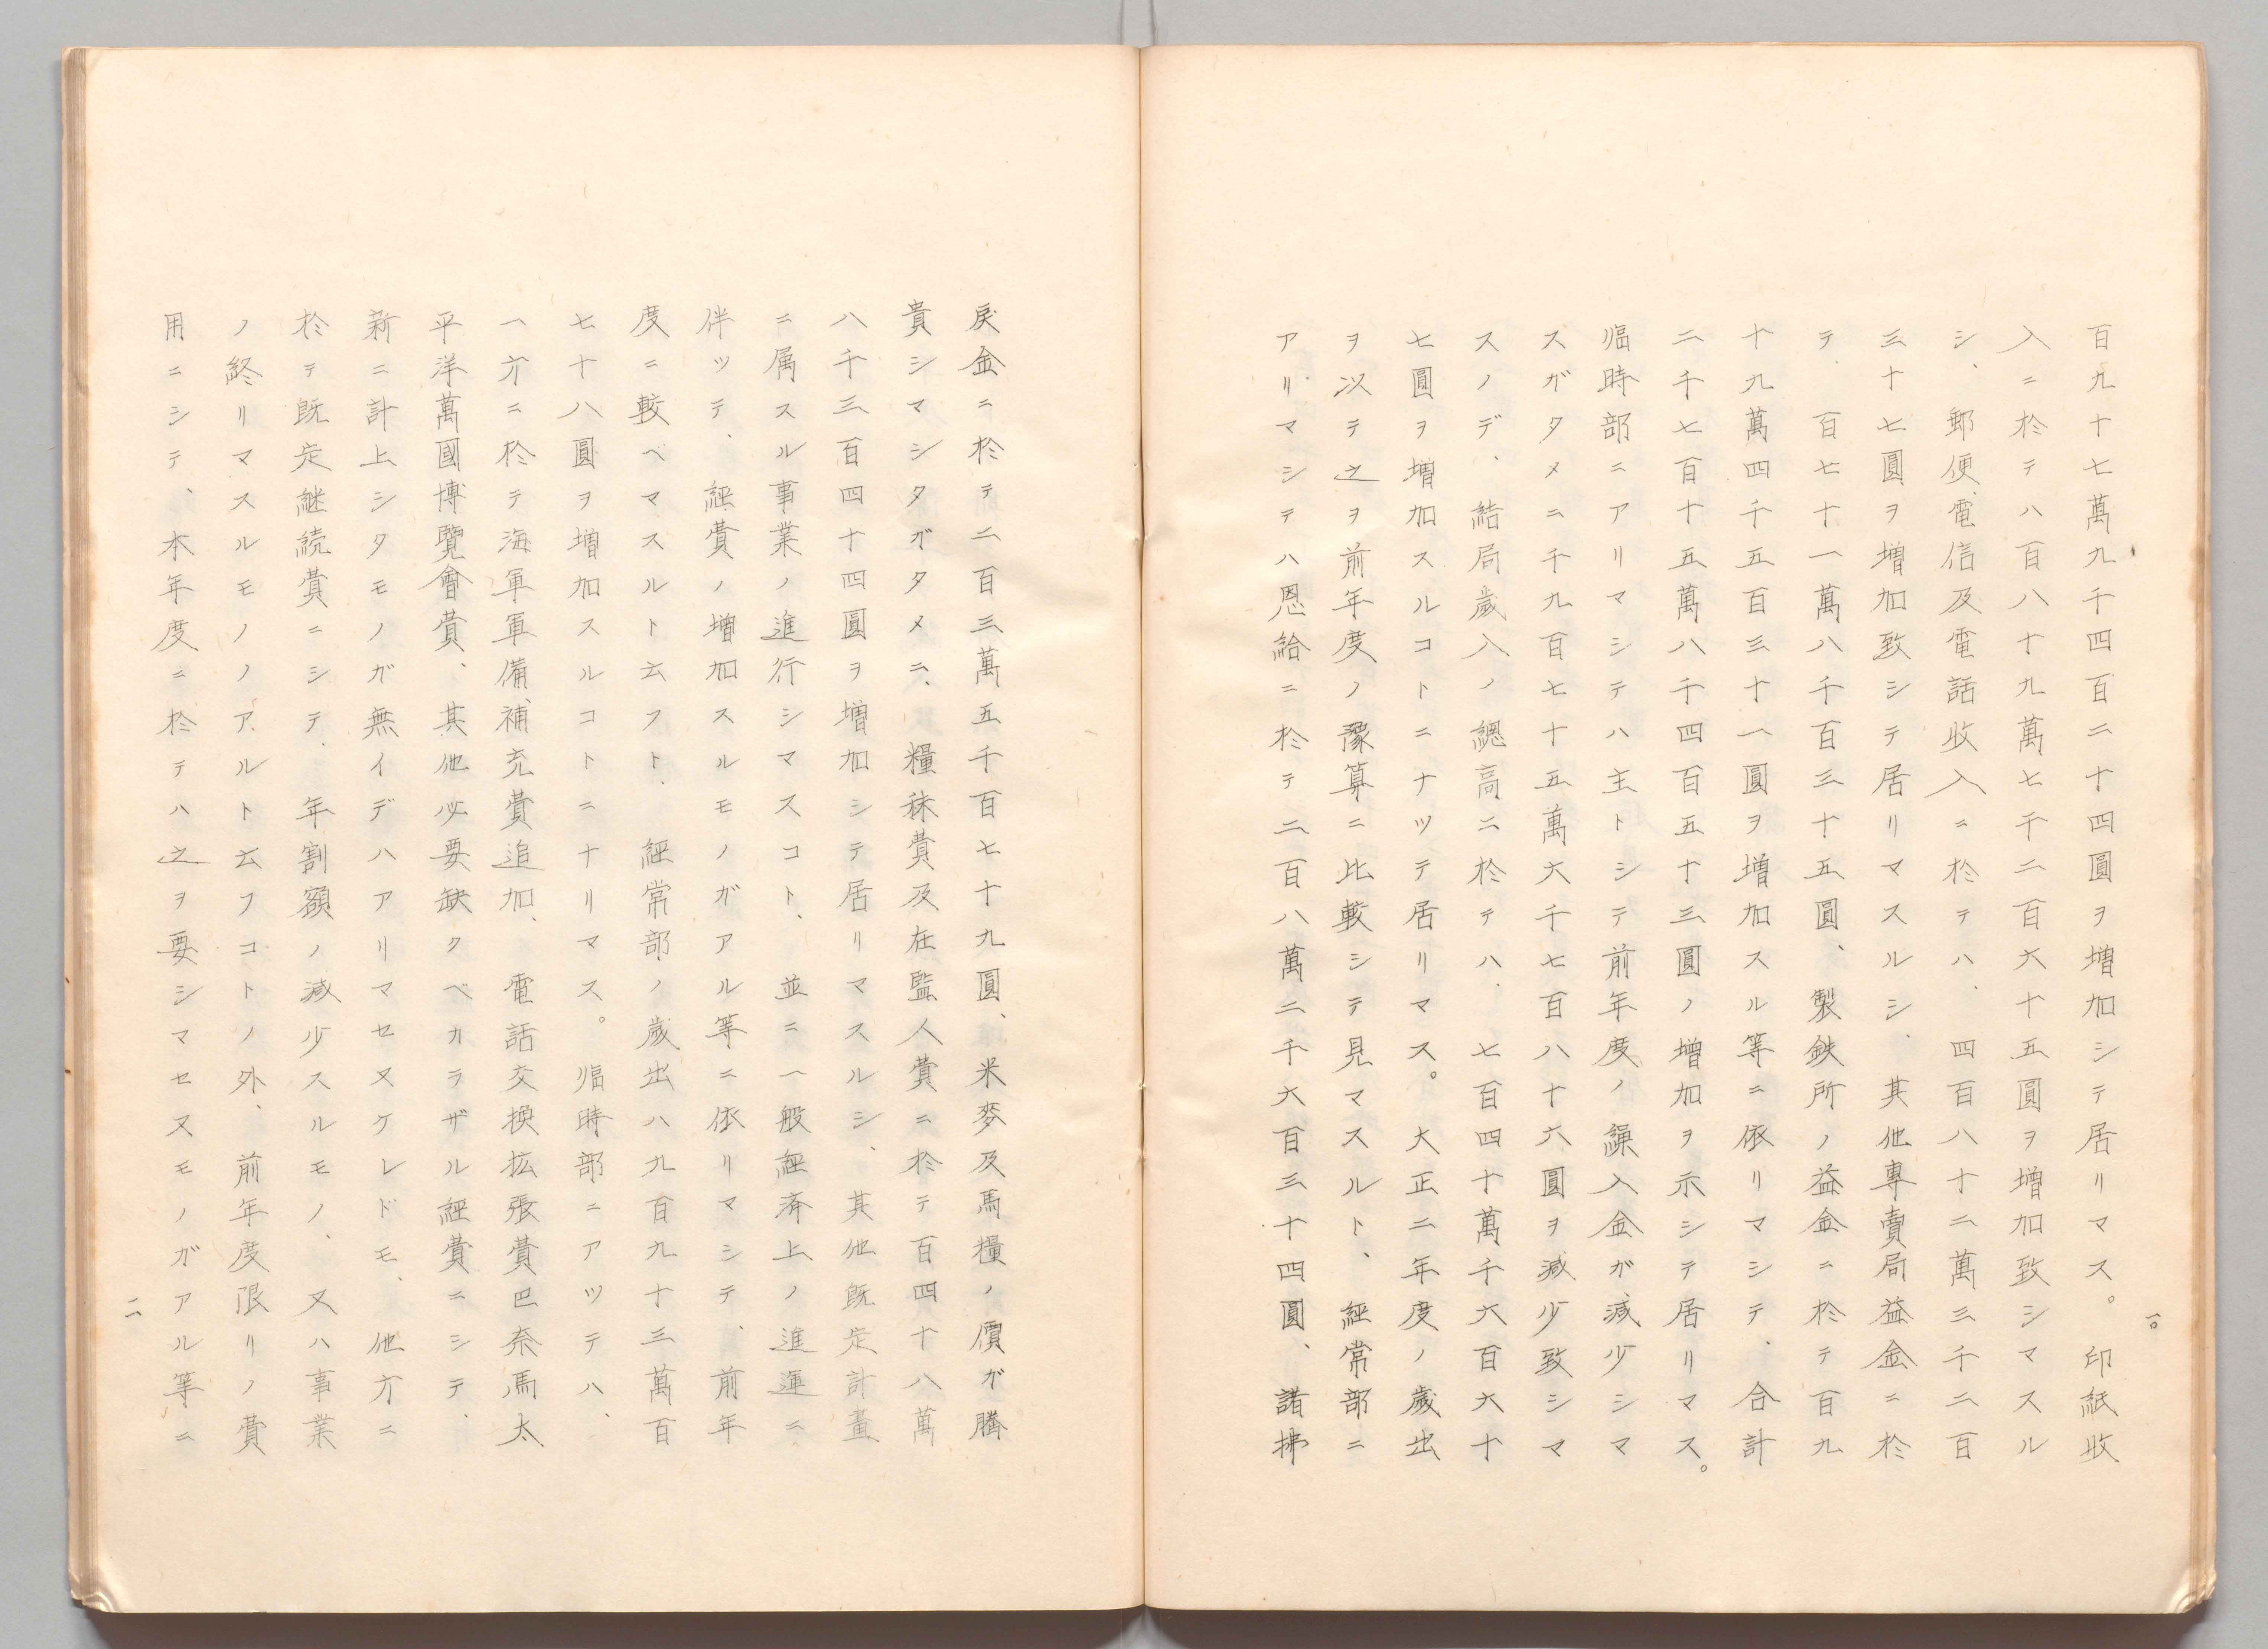 百九十七萬九千四百二十四圓ヲ増加シテ居リマス。印紙收
入ニ於テハ百八十九萬七千二百六十五圓ヲ増加致シマスル
シ、郵便電信及電話收入ニ於テハ、四百八十二萬三千二百
三十七圓ヲ増加致シテ居リマスルシ、其他專賣局益金ニ於
テ、百七十一萬八千百三十五圓、製鉄所ノ益金ニ於テ百九
十九萬四千五百三十一圓ヲ増加スル等ニ依リマシテ、合計
二千七百十五萬八千四百五十三圓ノ増加ヲ示シテ居リマス。
臨時部ニアリマシテハ主トシテ前年度ノ繰入金ガ減少シマ
スガタメニ千九百七十五萬六千七百八十六圓ヲ減少致シマ
スノデ、結局歲入ノ總高ニ於テハ、七百四十萬千六百六十
七圓ヲ増加スルコトニナツテ居リマス。大正二年度ノ歲出
ヲ以テ之ヲ前年度ノ豫算ニ比較シテ見マスルト、經常部ニ
アリマシテハ恩給ニ於テ二百八萬二千六百三十四圓、諸拂
一〇
戻金ニ於テ二百三萬五千百七十九圓、米麥及馬糧ノ價ガ騰
貴シマシタガタメニ、糧秣費及在監人費ニ於テ百四十八萬
八千三百四十四圓ヲ増加シテ居リマスルシ、其他既定計畫
ニ属スル事業ノ進行シマスコト、並ニ一般經済上ノ進運ニ
伴ツテ、經費ノ増加スルモノガアル等ニ依リマシテ、前年
度ニ較ベマスルト云フト、經常部ノ歲出ハ九百九十三萬百
七十八圓ヲ増加スルコトニナリマス。臨時部ニアツテハ、
一方ニ於テ海軍軍備補充費追加、電話交換拡張費巴奈馬太
平洋萬國博覽會費、其他必要缺クベカラザル經費ニシテ、
新ニ計上シタモノガ無イデハアリマセヌケレドモ、他方ニ
於テ既定継続費ニシテ、年割額ノ減少スルモノ、又ハ事業
ノ終リマスルモノノアルト云フコトノ外、前年度限リノ費
用ニシテ、本年度ニ於テハ之ヲ要シマセヌモノガアル等ニ
一一